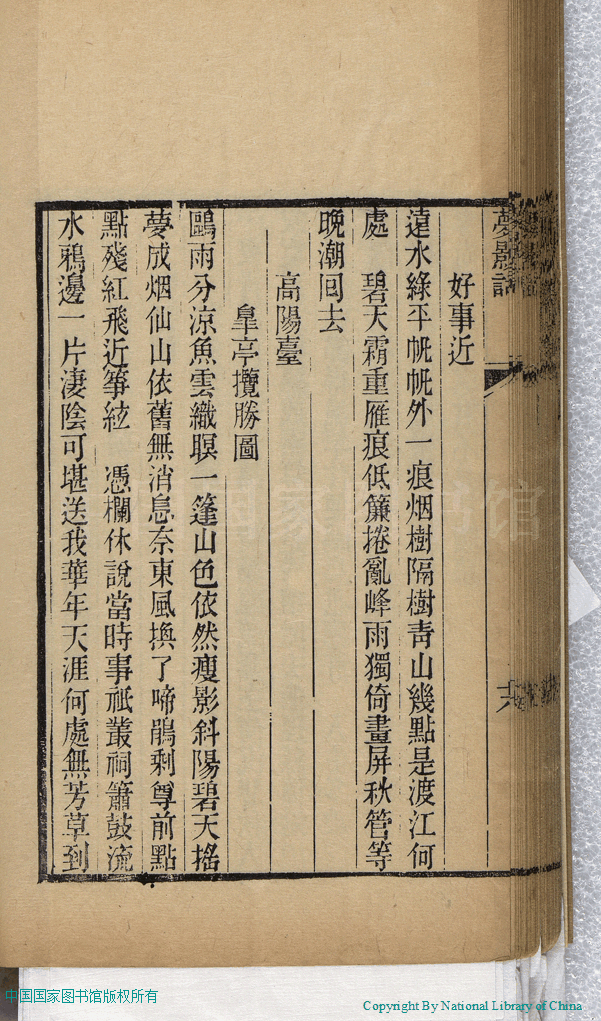 夢影詞
六
好事近
遠水綠平帆帆外一痕烟樹隔樹靑山幾點是渡江何
處　碧天霜重雁痕低簾捲亂峰雨獨倚畫屏秋管等
晚潮回去
高陽臺
皐亭攬勝圖
鷗雨分涼魚雲織暝一篷山色依然瘦影斜陽碧天搖
夢成烟仙山依舊無消息奈東風換了啼鵑剩尊前點
點殘紅飛近箏絃　憑欄休說當時事祇叢祠簫鼓流
水鴉邊一片淒陰可堪送我華年天涯何處無芳草到
国家图书馆
中国国家图书馆版权所有
Copyright By National Library of China